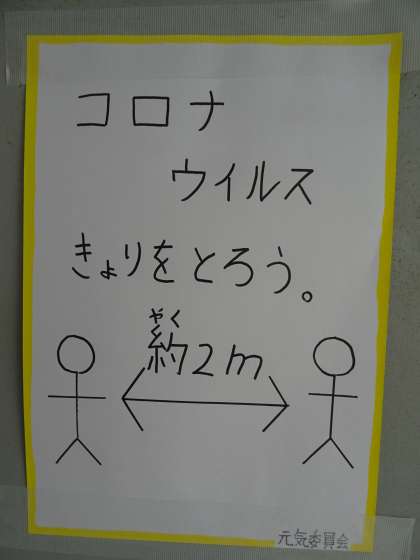 コロナ
ウイルス
きょりをとろう。
やく
約2m
元気委員会